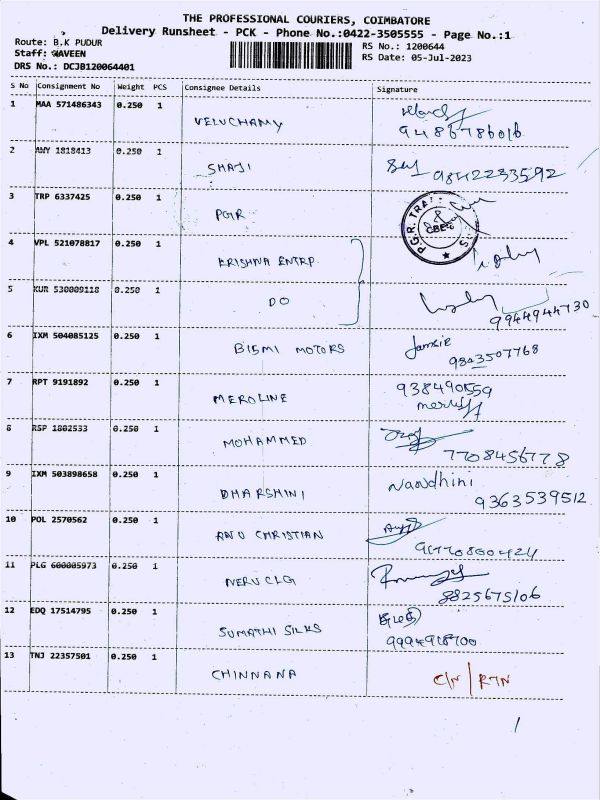 THE PROFESSIONAL COURIERS, COIMBATORE
Delivery Runsheet - PCK - Phone No.:0422-3505555 - Page No.:1
Route: B.K PUDUR
RS No.: 1200644
Staff: NAVEEN
RS Date: 05-Jul-2023
DRS No.: DCJB120064401
S No Consignment No Weight PCS Consignee Details Signature
1 MAA 571486343 0.250 1 VELUCHAMY
9486786016
2 AWY 1818413 0.250 1 SHAJI 9842233592
3 TRP 6337425 0.250 1 PGR
P.G.R. TRA
CBE
4 VPL 521078817 0.250 1 KRISHNA ENTRP
5 KUR 530009118 0.250 1 DO
9944944730
6 IXM 504085125 0.250 1 BISMI MOTORS
9843507768
7 RPT 9191892 0.250 1 MEROLINE 938490559
8 RSP 1802533 0.250 1 MOHAMMED
7708456778
9 IXM 503898658 0.250 1 DHARSHINI Nandhini
9363539512
10 POL 2570562 0.250 1 ANU CHRISTIAN
11 PLG 600005973 0.250 1 NERU CLG
8825675106
12 EDQ 17514795 0.250 1 SUMATHI SILKS
13 TNJ 22357501 0.250 1 CHINNANA C/N | RTN